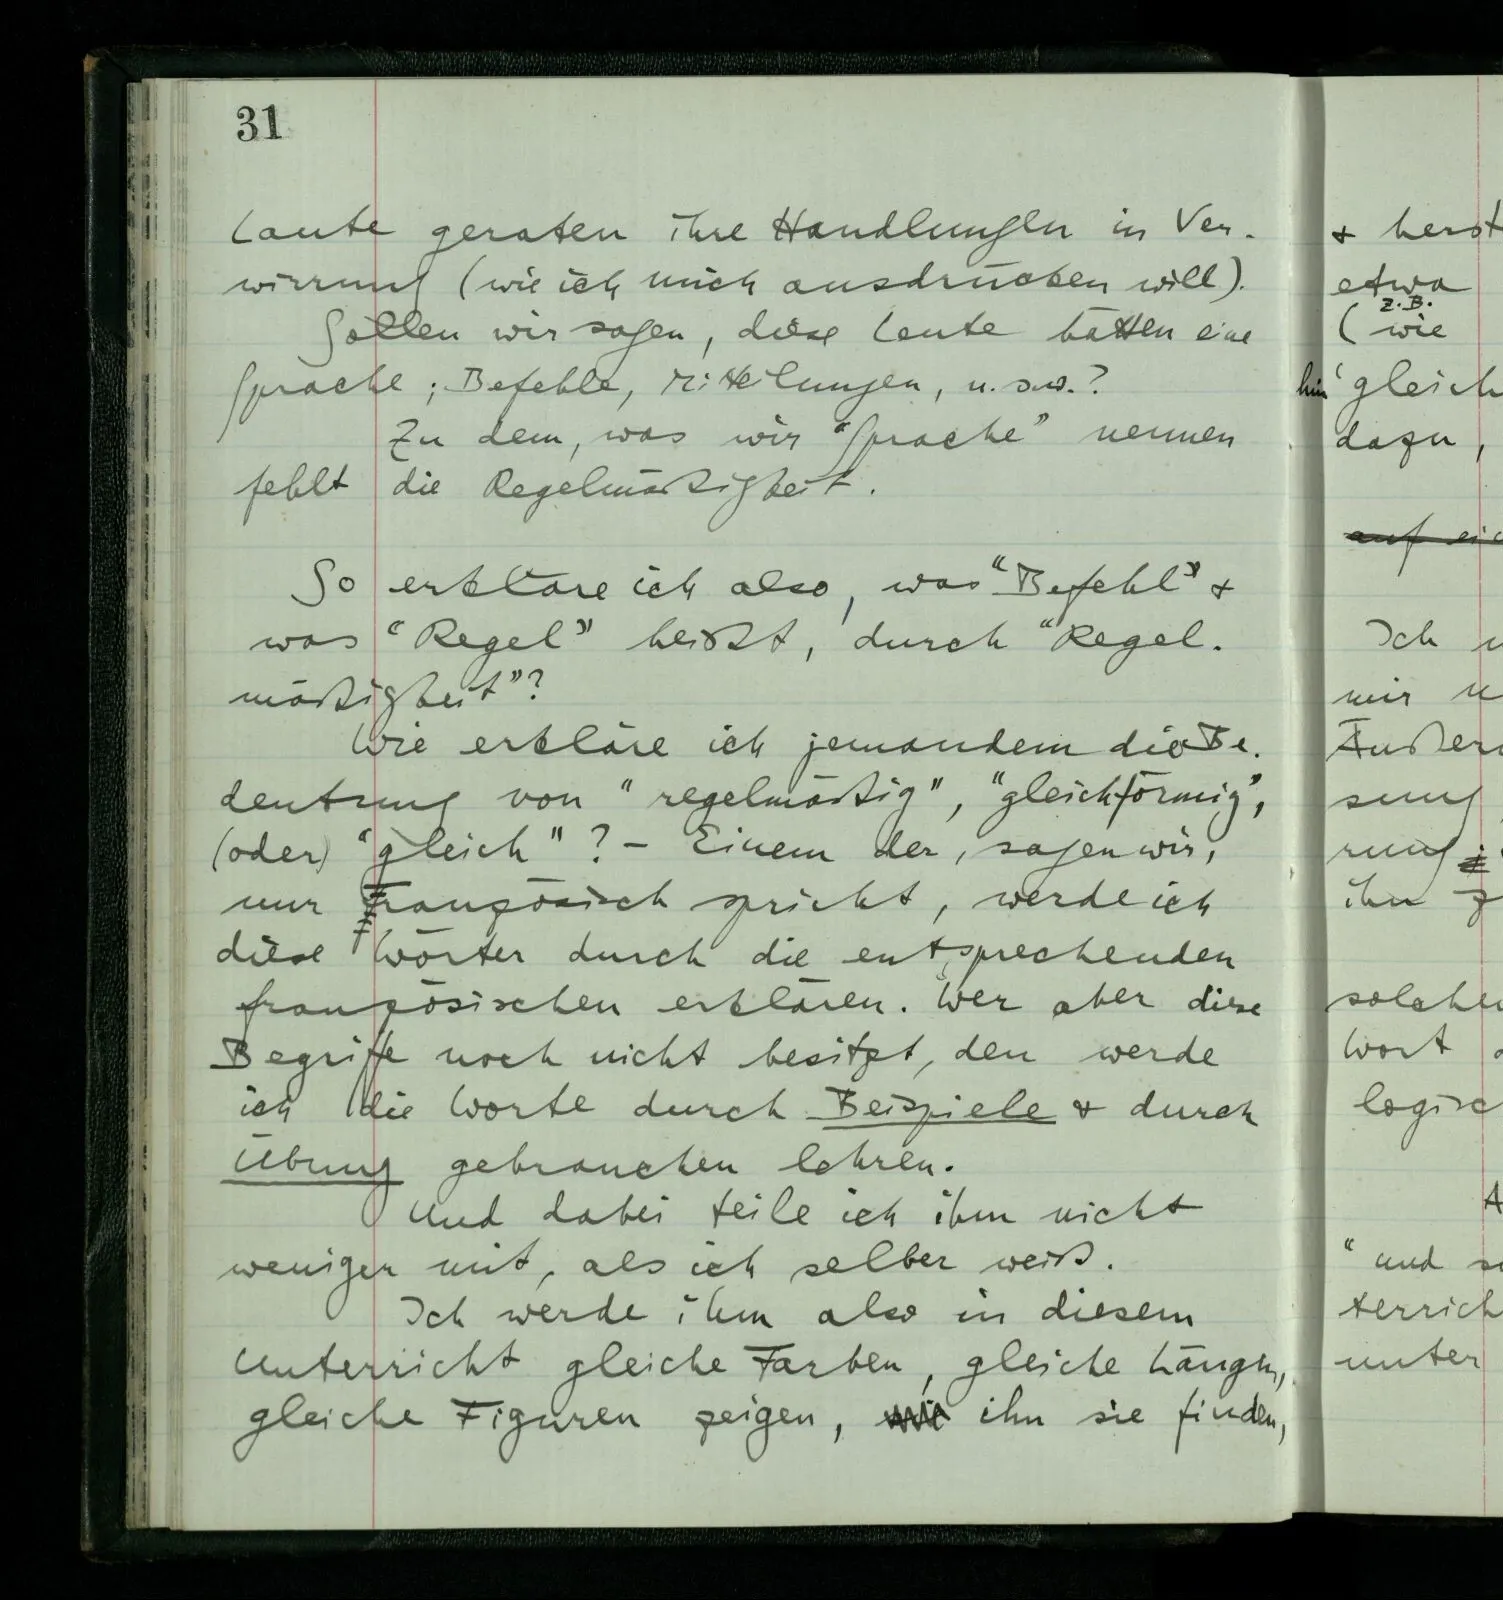 31
Laute geraten ihre Handlungen in Ver-
wirrung (wie ich mich ausdrücken will).
Sollen wir sagen, diese Leute hätten eine
Sprache; Befehle, Mitteilungen, u.s.w.?
Zu dem, was wir "Sprache" nennen
fehlt die Regelmäßigkeit.
So erkläre ich also, was "Befehl" &
was "Regel" heißt, durch "Regel-
mäßigkeit"?
Wie erkläre ich jemandem die Be-
deutung von "regelmäßig", "gleichförmig",
(oder) "gleich"? – Einem der, sagen wir,
nur Französisch spricht, werde ich
diese Wörter durch die entsprechenden
französischen erklären. Wer aber diese
Begriffe noch nicht besitzt, den werde
ich die Worte durch Beispiele & durch
Übung gebrauchen lehren.
Und dabei teile ich ihm nicht
weniger mit, als ich selber weiß.
Ich werde ihm also in diesem
Unterricht gleiche Farben, gleiche Längen,
gleiche Figuren zeigen, ihn sie finden,
&
etwa
z.B.
(wie
hin
dazu,
auf
Ich
mir
rung
ihn
Wort
"und
unter